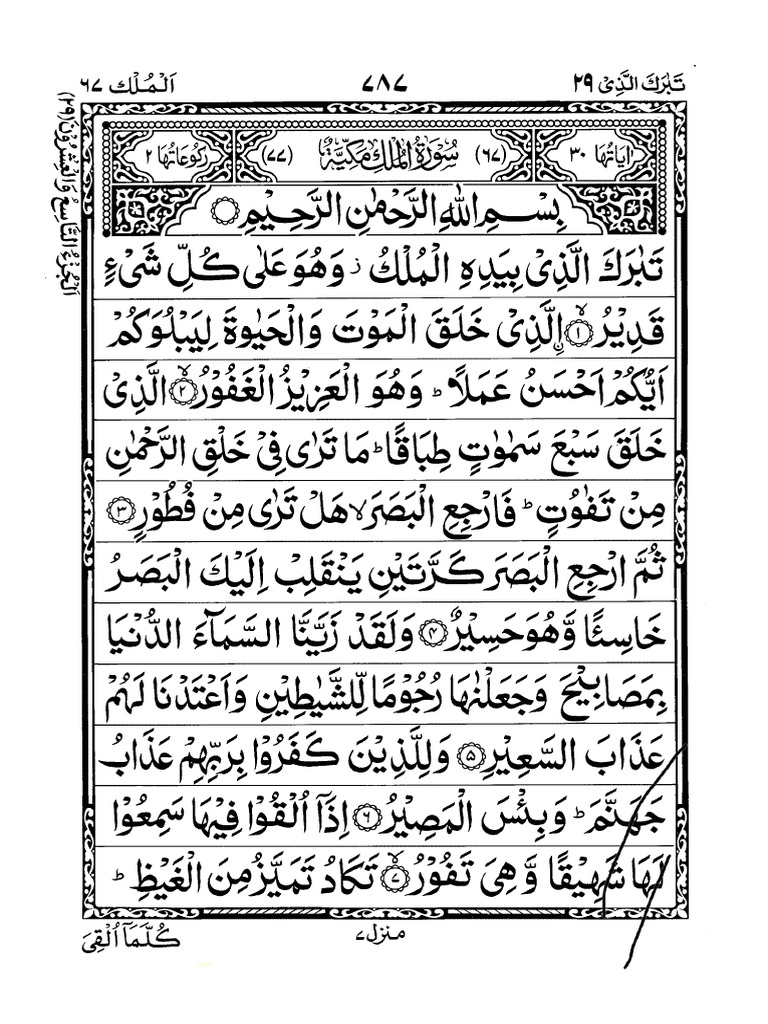 تَبٰرَكَ الَّذِىْ ٢٩
٧٨٧
اَلْمُلْك ٦٧
اَلْجُزْءُ التَّاسِعُ وَالْعِشْرُوْنَ (٢٩)
اٰيَاتُهَا ٣٠
(٦٧) سُوْرَةُ الْمُلْكِ مَكِّيَّةٌ (٧٧)
رُكُوْعَاتُهَا ٢
بِسْمِ اللّٰهِ الرَّحْمٰنِ الرَّحِيْمِ ○
تَبٰرَكَ الَّذِىْ بِيَدِهِ الْمُلْكُ ز وَهُوَ عَلٰى كُلِّ شَىْءٍ
قَدِيْرُ ۙ﴿١﴾ ۨالَّذِىْ خَلَقَ الْمَوْتَ وَالْحَيٰوةَ لِيَبْلُوَكُمْ
اَيُّكُمْ اَحْسَنُ عَمَلًا ؕ وَهُوَ الْعَزِيْزُ الْغَفُوْرُ ۙ﴿٢﴾ الَّذِىْ
خَلَقَ سَبْعَ سَمٰوٰتٍ طِبَاقًا ؕ مَا تَرٰى فِىْ خَلْقِ الرَّحْمٰنِ
مِنْ تَفٰوُتٍ ؕ فَارْجِعِ الْبَصَرَ ۙ هَلْ تَرٰى مِنْ فُطُوْرٍ ﴿٣﴾
ثُمَّ ارْجِعِ الْبَصَرَ كَرَّتَيْنِ يَنْقَلِبْ اِلَيْكَ الْبَصَرُ
خَاسِئًا وَّهُوَ حَسِيْرٌ ﴿٤﴾ وَلَقَدْ زَيَّنَّا السَّمَآءَ الدُّنْيَا
بِمَصَابِيْحَ وَجَعَلْنٰهَا رُجُوْمًا لِّلشَّيٰطِيْنِ وَاَعْتَدْنَا لَهُمْ
عَذَابَ السَّعِيْرِ ﴿٥﴾ وَلِلَّذِيْنَ كَفَرُوْا بِرَبِّهِمْ عَذَابُ
جَهَنَّمَ ؕ وَبِئْسَ الْمَصِيْرُ ﴿٦﴾ اِذَآ اُلْقُوْا فِيْهَا سَمِعُوْا
لَهَا شَهِيْقًا وَّهِىَ تَفُوْرُ ۙ﴿٧﴾ تَكَادُ تَمَيَّزُ مِنَ الْغَيْظِ ؕ
منزل ٧
كُلَّمَآ اُلْقِىَ